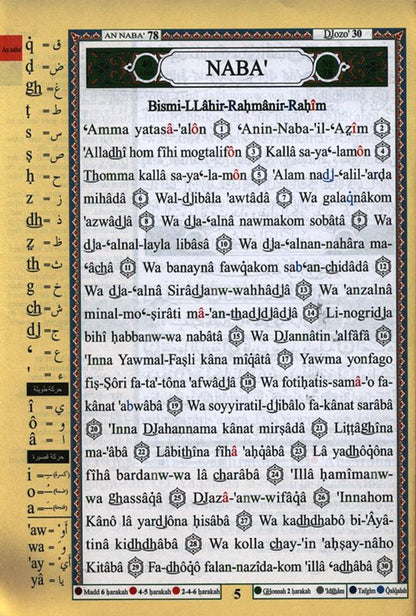 AN NABA' 78
DJozo' 30
An naba'
NABA'
Bismi-LLâhir-Raḥmânir-Raḥîm
‘Amma yatasâ-'alôn 1 ‘Anin-Naba-'il-‘Aẓîm 2
'Alladhî hom fîhi mogtalifôn 3 Kallâ sa-ya‘-lamôn 4
Thomma kallâ sa-ya‘-la-môn 5 'Alam nadj-‘alil-'arḍa
mihâdâ 6 Wal-djibâla 'awtâdâ 7 Wa galaqnâkom
'azwâdjâ 8 Wa dja-‘alnâ nawmakom sobâtâ 9 Wa
dja-‘alnal-layla libâsâ 10 Wa djan-‘alnan-nahâra ma-
‘âchâ 11 Wa banaynâ fawqakom sab‘an-chidâdâ 12
Wa dja-‘alnâ Sirâdjanw-wahhâdjâ 13 Wa 'anzalnâ
minal-mo‘-ṣirâti mâ-'an-thadjdjâdjâ 14 Li-nogridja
bihî ḥabbanw-wa nabâtâ 15 Wa DJannâtin 'alfâfâ 16
'Inna Yawmal-Faṣli kâna mîqâtâ 17 Yawma yonfago
fiṣ-Ṣôri fa-ta'-tôna 'afwâdjâ 18 Wa fotiḥatis-samâ-'o fa-
kânat 'abwâbâ 19 Wa soyyiratil-djibâlo fa-kânat sarâbâ
20 'Inna DJahannama kânat mirṣâdâ 21 Liṭṭâghîna
ma-'âbâ 22 Lâbithîna fîhâ 'aḥqâbâ 23 Lâ yadhôqôna
fîhâ bardanw-wa lâ charâbâ 24 'Illâ ḥamîmanw-
wa ghassâqâ 25 DJazâ-'anw-wifâqâ 26 'Innahom
Kânô lâ yardjôna ḥisâbâ 27 Wa kadhdhabô bi-'Âyâ-
tinâ kidhdhâbâ 28 Wa kolla chay-'in 'aḥṣay-nâho
Kitâbâ 29 Fa-dhôqô falan-nazîda-kom 'illâ ‘adhâbâ 30
q = ق
ḍ = ض
gh = غ
ṭ = ط
s = س
ṣ = ص
ḥ = ح
z = ز
dh = ذ
ẓ = ظ
th = ث
g = خ
ch = ش
dj = ج
‘ = ع
' = ء
حركة طويلة
î = ي
ô = و
â = ا
حركة قصيرة
i = (كسرة)
o = (ضمة)
a = (فتحة)
'aw = أَوْ
wa = وَ
'ay = أَيْ
yâ = يا
Madd 6 ḥarakah
4-5 ḥarakah
2-4-6 ḥarakah
5
Ghonnah 2 ḥarakah
'Idghâm
Tafgîm
Qalqalah